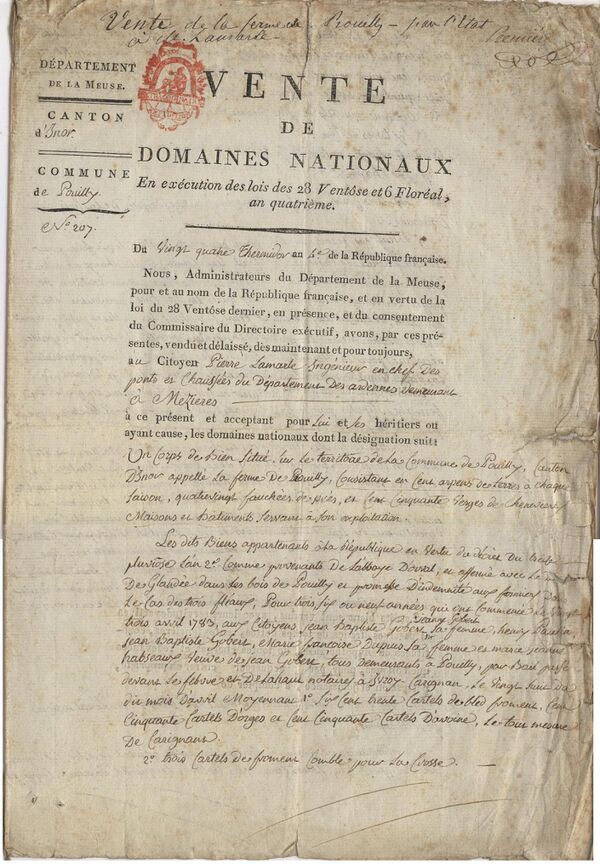 Vente de la ferme de Pouilly par l'Etat
à Mr. Lamarle
DÉPARTEMENT
DE LA MEUSE.
CANTON
d'Inor.
COMMUNE
de Pouilly.
N.o 207.
VENTE
DE
DOMAINES NATIONAUX
En exécution des lois des 28 Ventôse et 6 Floréal,
an quatrième.
Du Vingt quatre Thermidor an 4e de la République française.
Nous, Administrateurs du Département de la Meuse,
pour et au nom de la République française, et en vertu de la
loi du 28 Ventôse dernier, en présence, et du consentement
du Commissaire du Directoire exécutif, avons, par ces pré-
sentes, vendu et délaissé, dès maintenant et pour toujours,
au Citoyen Pierre Lamarle Ingénieur en chef Des
ponts et Chaussées du Département Des ardennes demeurant
à Mézieres
à ce présent et acceptant pour Lui et ses héritiers ou
ayant cause, les domaines nationaux dont la désignation suit:
Un Corps de Bien Situé sur le territoire de la Commune de Pouilly, Canton
d'Inor appellé La ferme De Pouilly, Consistant en Cent arpens de terres à chaque
Saison, quatrevingt fauchées de prés, et Cent Cinquante Verges de Chenevieres
Maisons et Bâtiments servant à Son exploitation.
Les dits Biens appartenants à la République en Vertu du décret Du treize
pluviôse l'an 2e Comme provenants De l'abbaye Dorval, et affermé avec Le
De Glandée dans les bois de Pouilly et promesse D'indemnité aux fermiers Dans
Le Cas des trois fleaux, Pour trois six ou neuf années qui ont Commencé Le Vingt
trois avril 1783, aux Citoyens jean Baptiste Gobert, La femme, henry
jean Baptiste Gobert, Marie françoise Dupuis La femme et marie jeanne
habseaux Veuve de jean Gobert, tous Demeurants à Pouilly, par Bail passé
devant Lefebvre et Delahaut notaires à Ivoy Carignan, Le Vingt huit
du mois D'avril Moyennant 1o Six Cent trente Cartels de bled froment, Cent
Cinquante Cartels D'orges et Cent Cinquante Cartels D'avoine, Le tout mesure
De Carignan.
2o trois Cartels de froment Comble pour La Crosse.